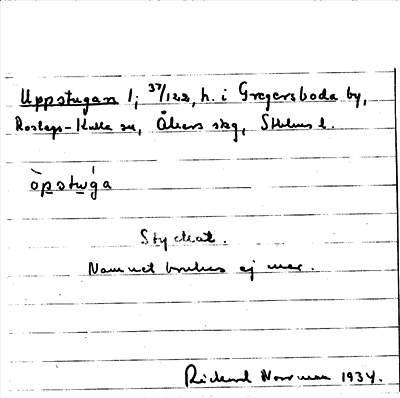 Uppstugan 1; 37/122, h. i Gregersboda by,
Roslags-Kulla sn, Åkers skg, Sthlms l.
òpstu̲ǵa
Styckat.
Namnet brukas ej mer.
Rickard Norrman 1934.